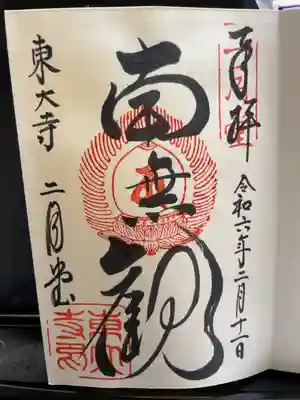 奉拝
令和六年二月十一日
南無観
東大寺 二月堂